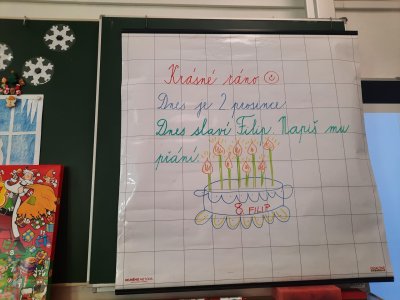 Krásné ráno ☺
Dnes je 2. prosince.
Dnes slaví Filip. Napiš mu
přání.
8 FILIP